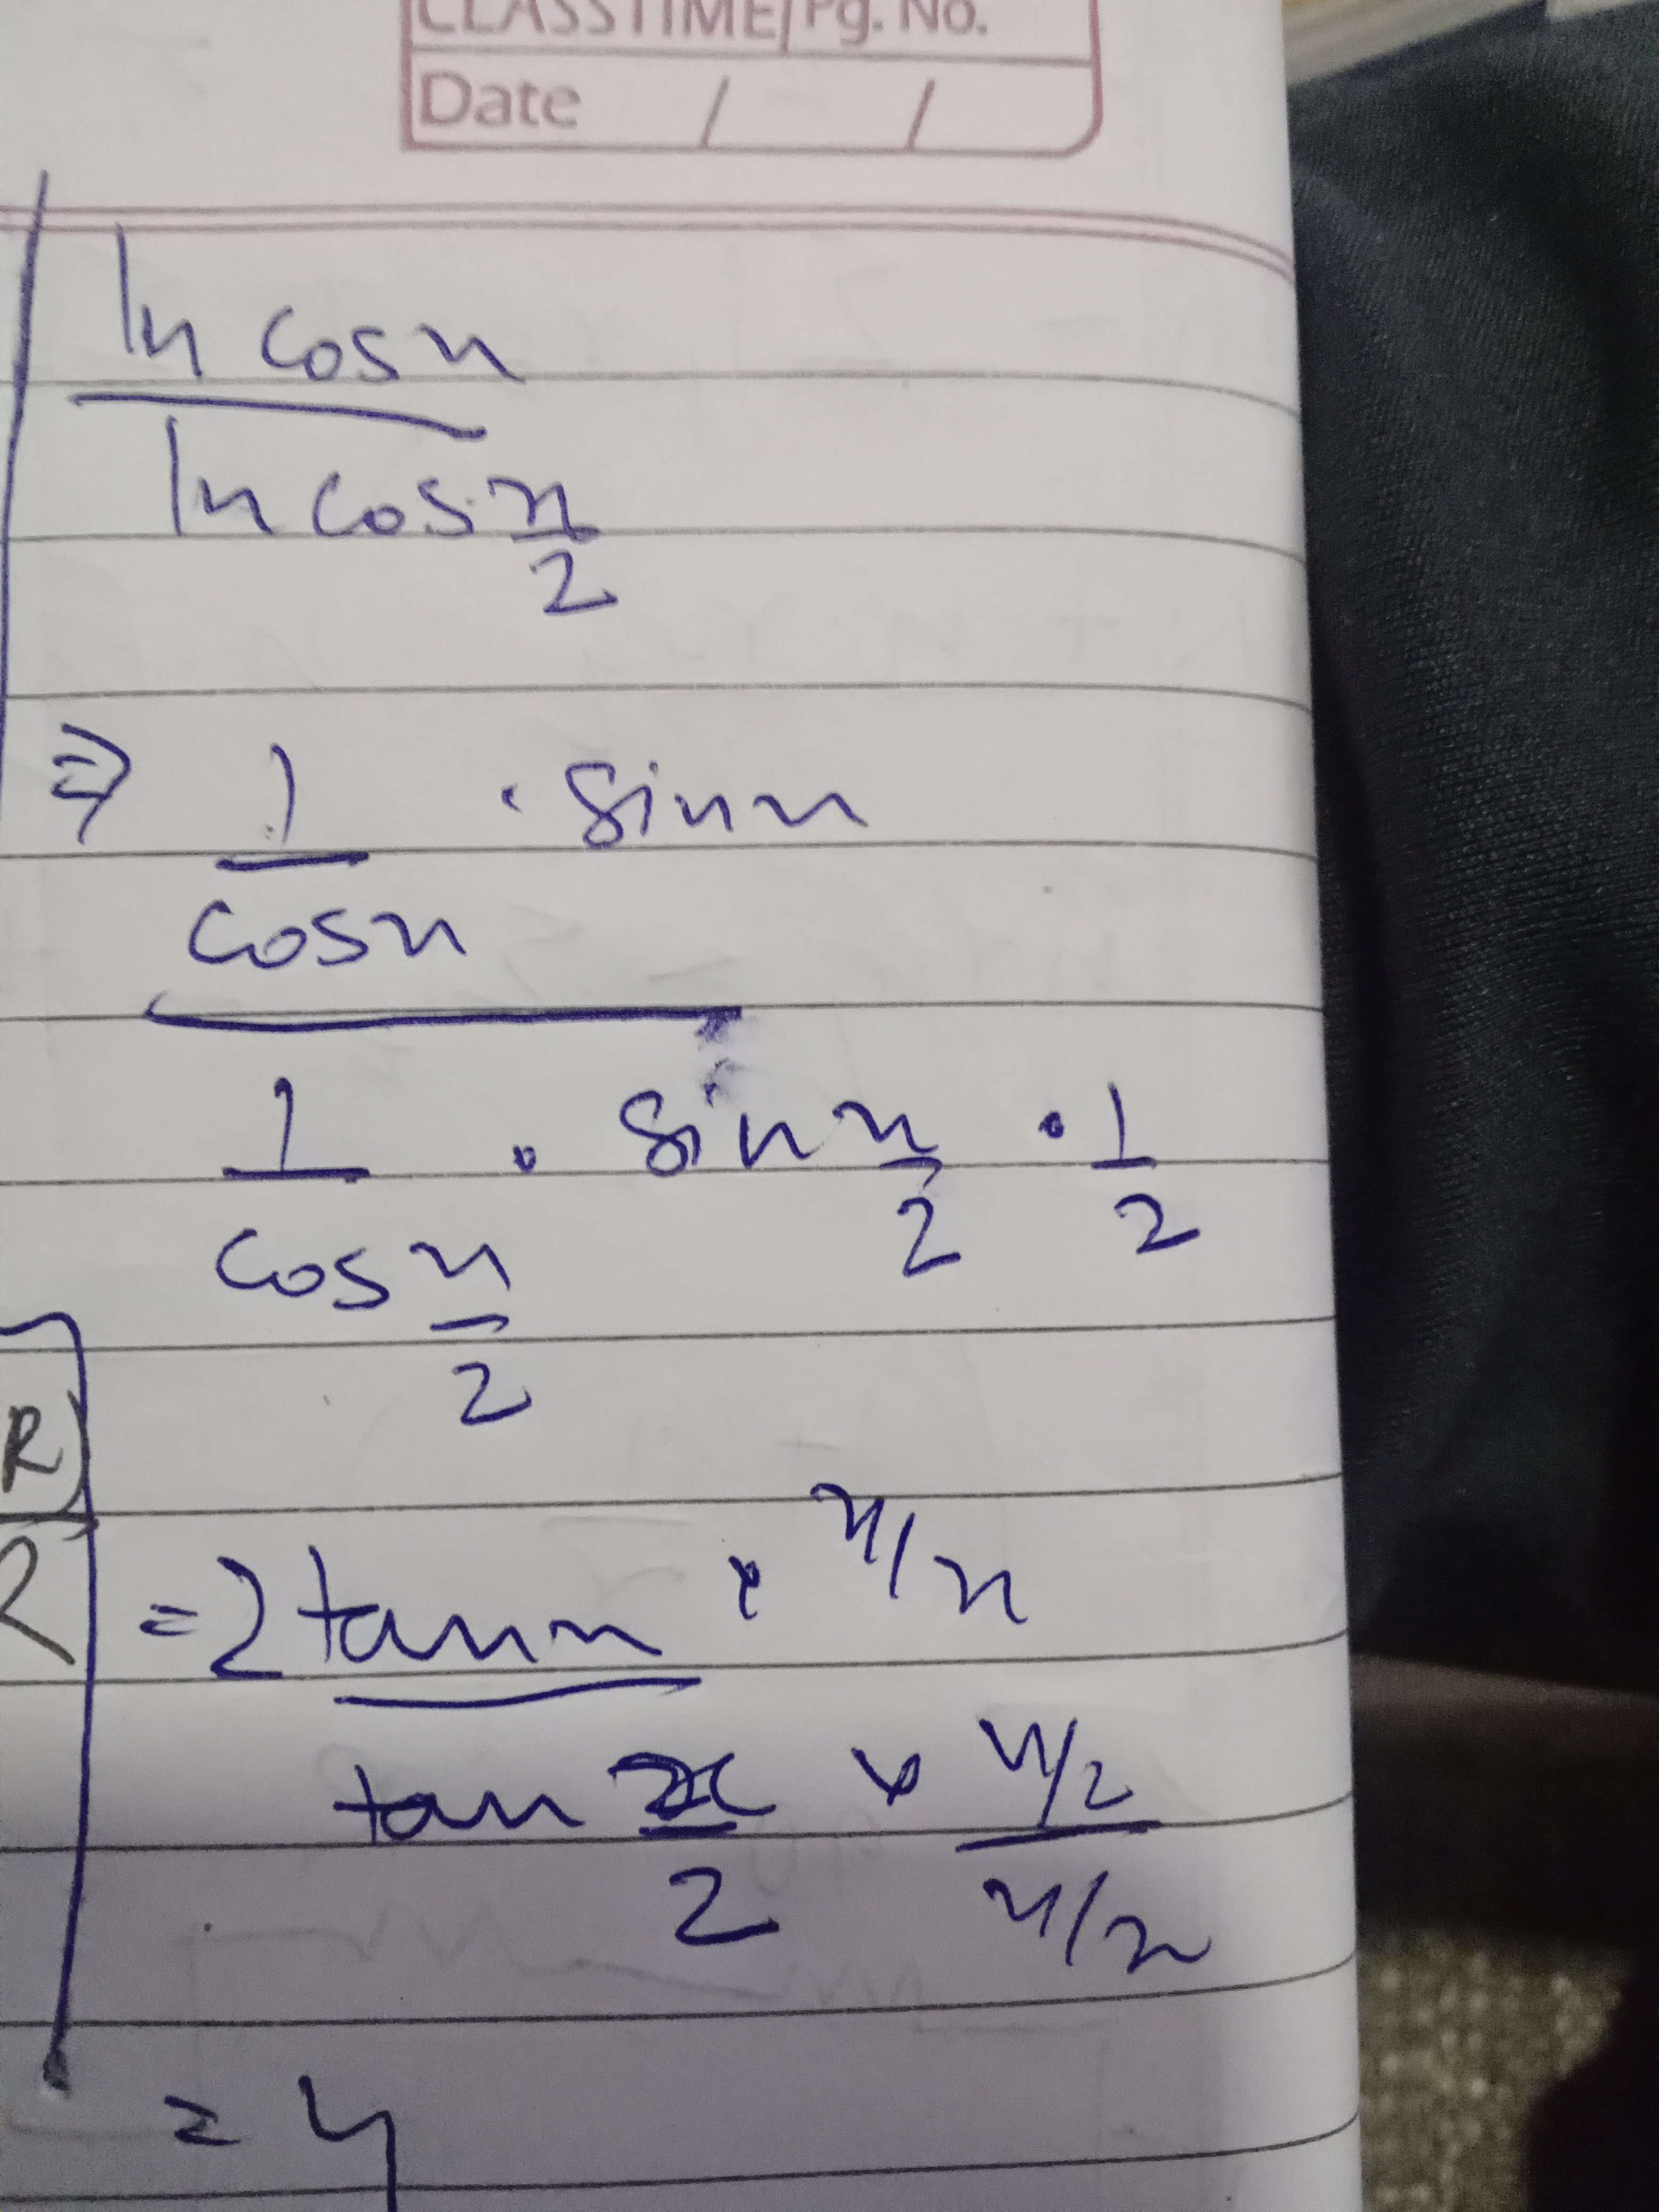 CLASSTIME/Pg. No.
Date / /
ln cosx
ln cos x/2
⇒ 1/cosx · sinx
1/cos x/2 · sin x/2 · 1/2
R)
R
= 2 tanx × x/x
tan x/2 × x/2 / x/2
= 4